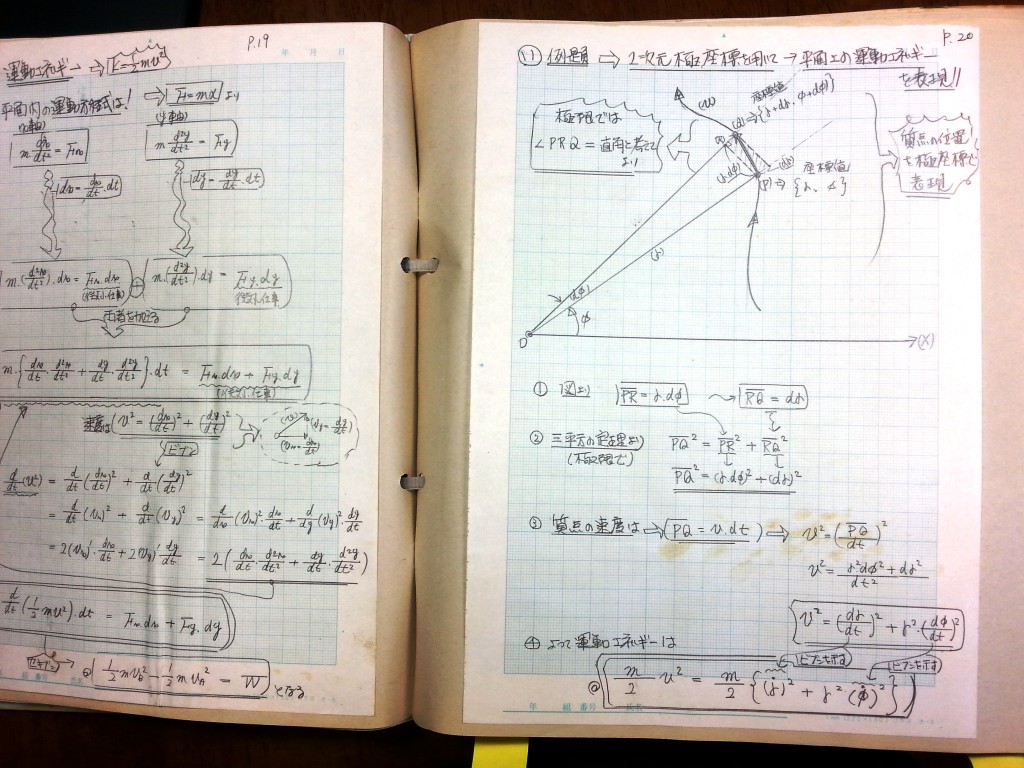 P.19
年 月 日
運動エネルギー → K=½mv²
平面内の運動方程式は! ⇒ F=mα より
(x軸) (y軸)
m d²x/dt² = Fx m d²y/dt² = Fy
dx = dx/dt・dt dy = dy/dt・dt
m・(d²x/dt²)・dx = Fx・dx ⊕ m・(d²y/dt²)・dy = Fy・dy
(微小仕事) (微小仕事)
両者を加える
m・{dx/dt・d²x/dt² + dy/dt・d²y/dt²}・dt = Fx・dx + Fy・dy
(微小仕事)
速度は (v² = (dx/dt)² + (dy/dt)²) (v) vy = dy/dt
(vx = dx/dt)
ビブン
d/dt(v²) = d/dt(dx/dt)² + d/dt(dy/dt)²
= d/dt(vx)² + d/dt(vy)² = d/dx(vx)²・dx/dt + d/dy(vy)²・dy/dt
= 2(vx)'・dx/dt + 2(vy)'・dy/dt = 2(dx/dt・d²x/dt² + dy/dt・d²y/dt²)
d/dt(½mv²)・dt = Fx・dx + Fy・dy
セキブン → ◎ ½mv_B² − ½mv_A² = W となる
組 番号 氏名
P.20
(1) 例題 ⇒ 2次元極座標を用いて → 平面上の運動エネルギー
を表現!!
極限では
∠PRQ = 直角と考えて
よい
(v)
座標値
(Q) ⇒ {r+dr, φ+dφ}
(R)
(r・dφ)
(dr)
(P) ⇒ 座標値
{r、φ}
質点の位置
を極座標で
表現
(r)
(dφ)
φ
O (X)
① 図より PR = r・dφ → RQ = dr
② 三平方の定理より PQ² = PR² + RQ²
(極限で) PQ² = (r・dφ)² + (dr)²
③ 質点の速度は → (PQ = v・dt) ⇒ v² = (PQ/dt)²
v² = (r²dφ² + dr²)/dt²
v² = (dr/dt)² + r²・(dφ/dt)²
④ よって運動エネルギーは
ビブンを示す ビブンを示す
◎ m/2 v² = m/2 {(ṙ)² + r²(φ̇)²}
年 組 番号 氏名